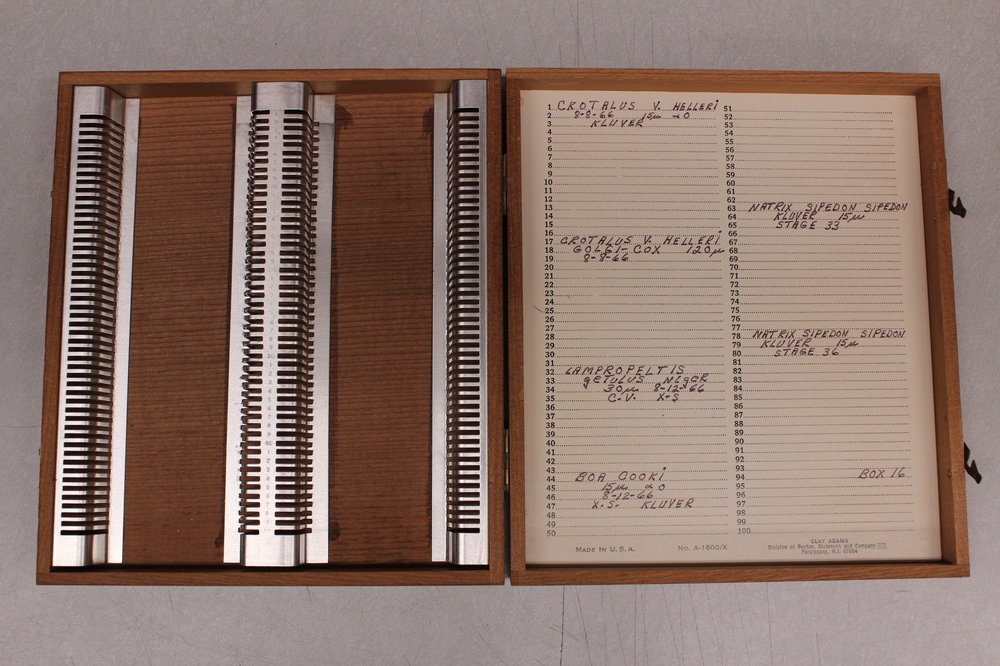 1 CROTALUS V. HELLERI
2 8-8-66 15µ
3 KLUVER
4
5
6
7
8
9
10
11
12
13
14
15
16
17 CROTALUS V. HELLERI
18 GOLGI-COX 120µ
19 8-8-66
20
21
22
23
24
25
26
27
28
29
30
31
32 LAMPROPELTIS
33 gETULUS NIgER
34 30µ 8-12-66
35 C.V. X-S
36
37
38
39
40
41
42
43
44 BOA COOKI
45 15µ
46 8-12-66
47 X.S. KLUVER
48
49
50
51
52
53
54
55
56
57
58
59
60
61
62
63 NATRIX SIPEDON SIPEDON
64 KLUVER 15µ
65 STAGE 33
66
67
68
69
70
71
72
73
74
75
76
77
78 NATRIX SIPEDON SIPEDON
79 KLUVER 15µ
80 STAGE 36
81
82
83
84
85
86
87
88
89
90
91
92
93
94 BOX 16
95
96
97
98
99
100
MADE IN U.S.A. No. A-1600/X
CLAY ADAMS
Division of Becton, Dickinson and Company
Parsippany, N.J. 07054